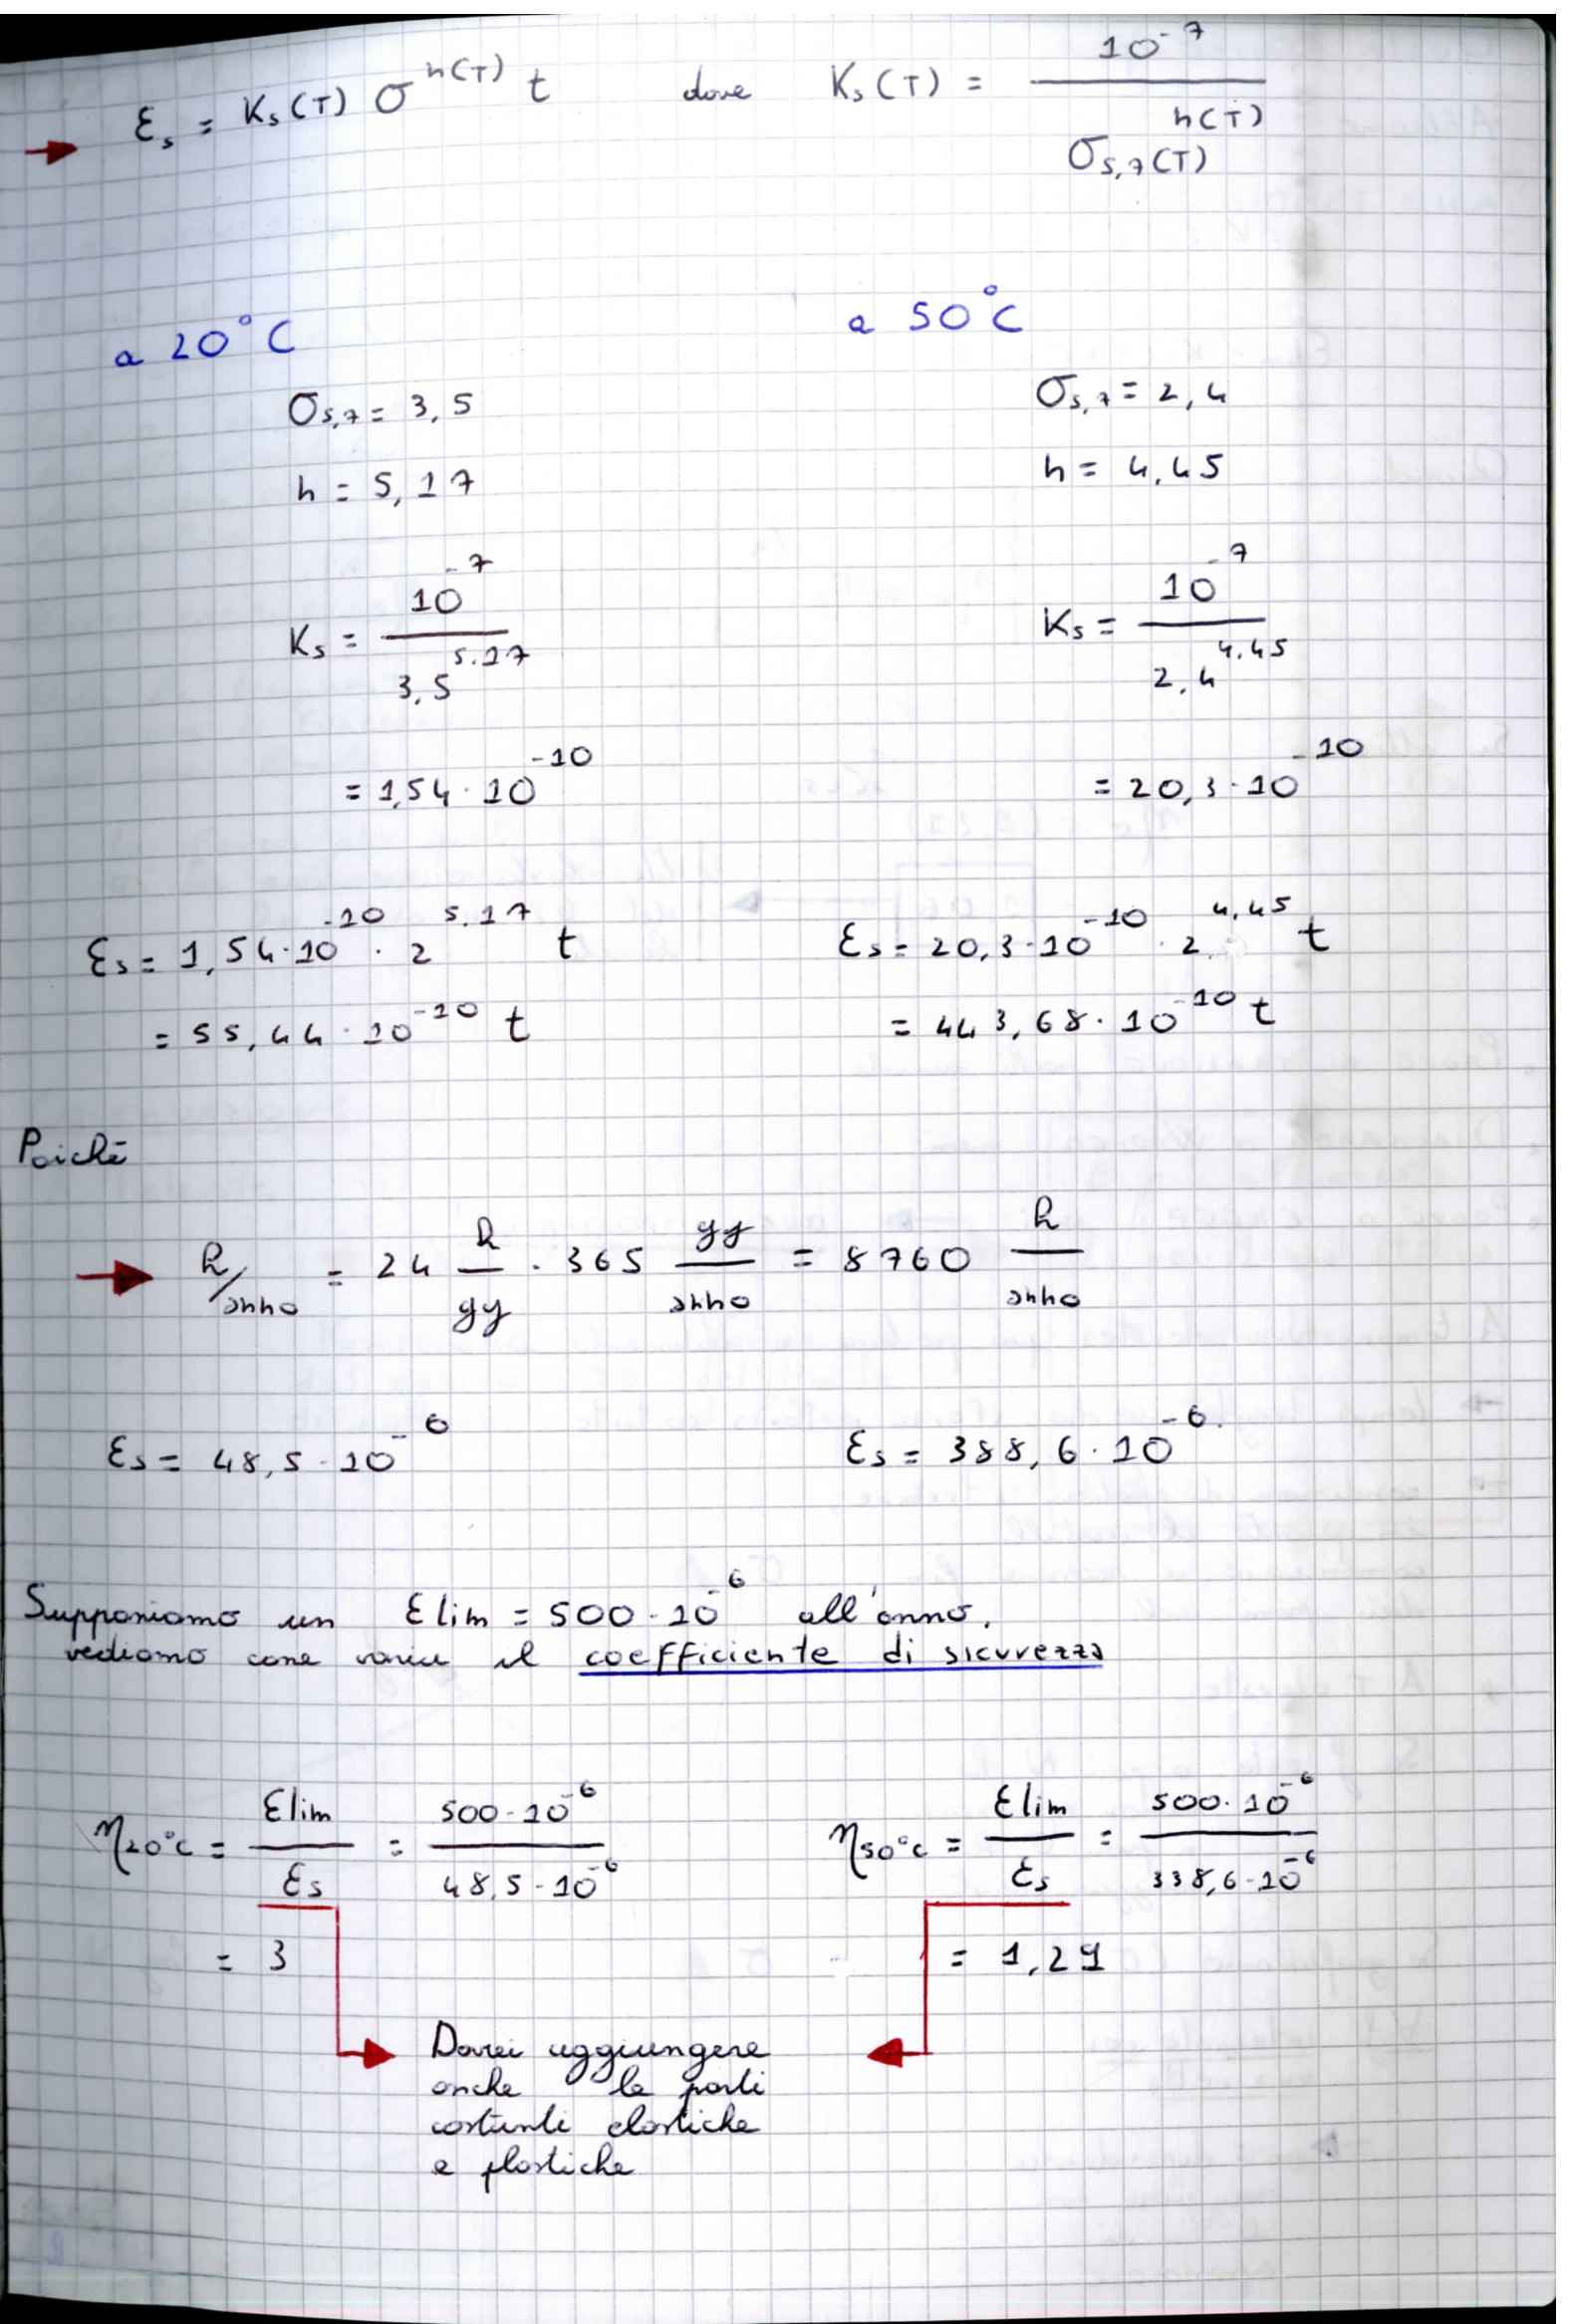 → εs = Ks(T) σ^n(T) t dove Ks(T) = 10^-7 / σs,7(T)^n(T)
a 20°C
a 50°C
σs,7 = 3,5
σs,7 = 2,4
n = 5,17
n = 4,45
Ks = 10^-7 / 3,5^5.17
Ks = 10^-7 / 2,4^4.45
= 1,54 · 10^-10
= 20,3 · 10^-10
εs = 1,54 · 10^-10 · 2^5.17 t
εs = 20,3 · 10^-10 · 2^4,45 t
= 55,44 · 10^-10 t
= 443,68 · 10^-10 t
Poiché
→ h/anno = 24 h/gg · 365 gg/anno = 8760 h/anno
εs = 48,5 · 10^-6
εs = 388,6 · 10^-6
Supponiamo un εlim = 500 · 10^-6 all'anno,
vediamo come varia il coefficiente di sicurezza
η20°C = εlim / εs = 500 · 10^-6 / 48,5 · 10^-6
η50°C = εlim / εs = 500 · 10^-6 / 338,6 · 10^-6
= 3
= 1,29
Dovrei aggiungere
anche le parti
costanti elastiche
e plastiche